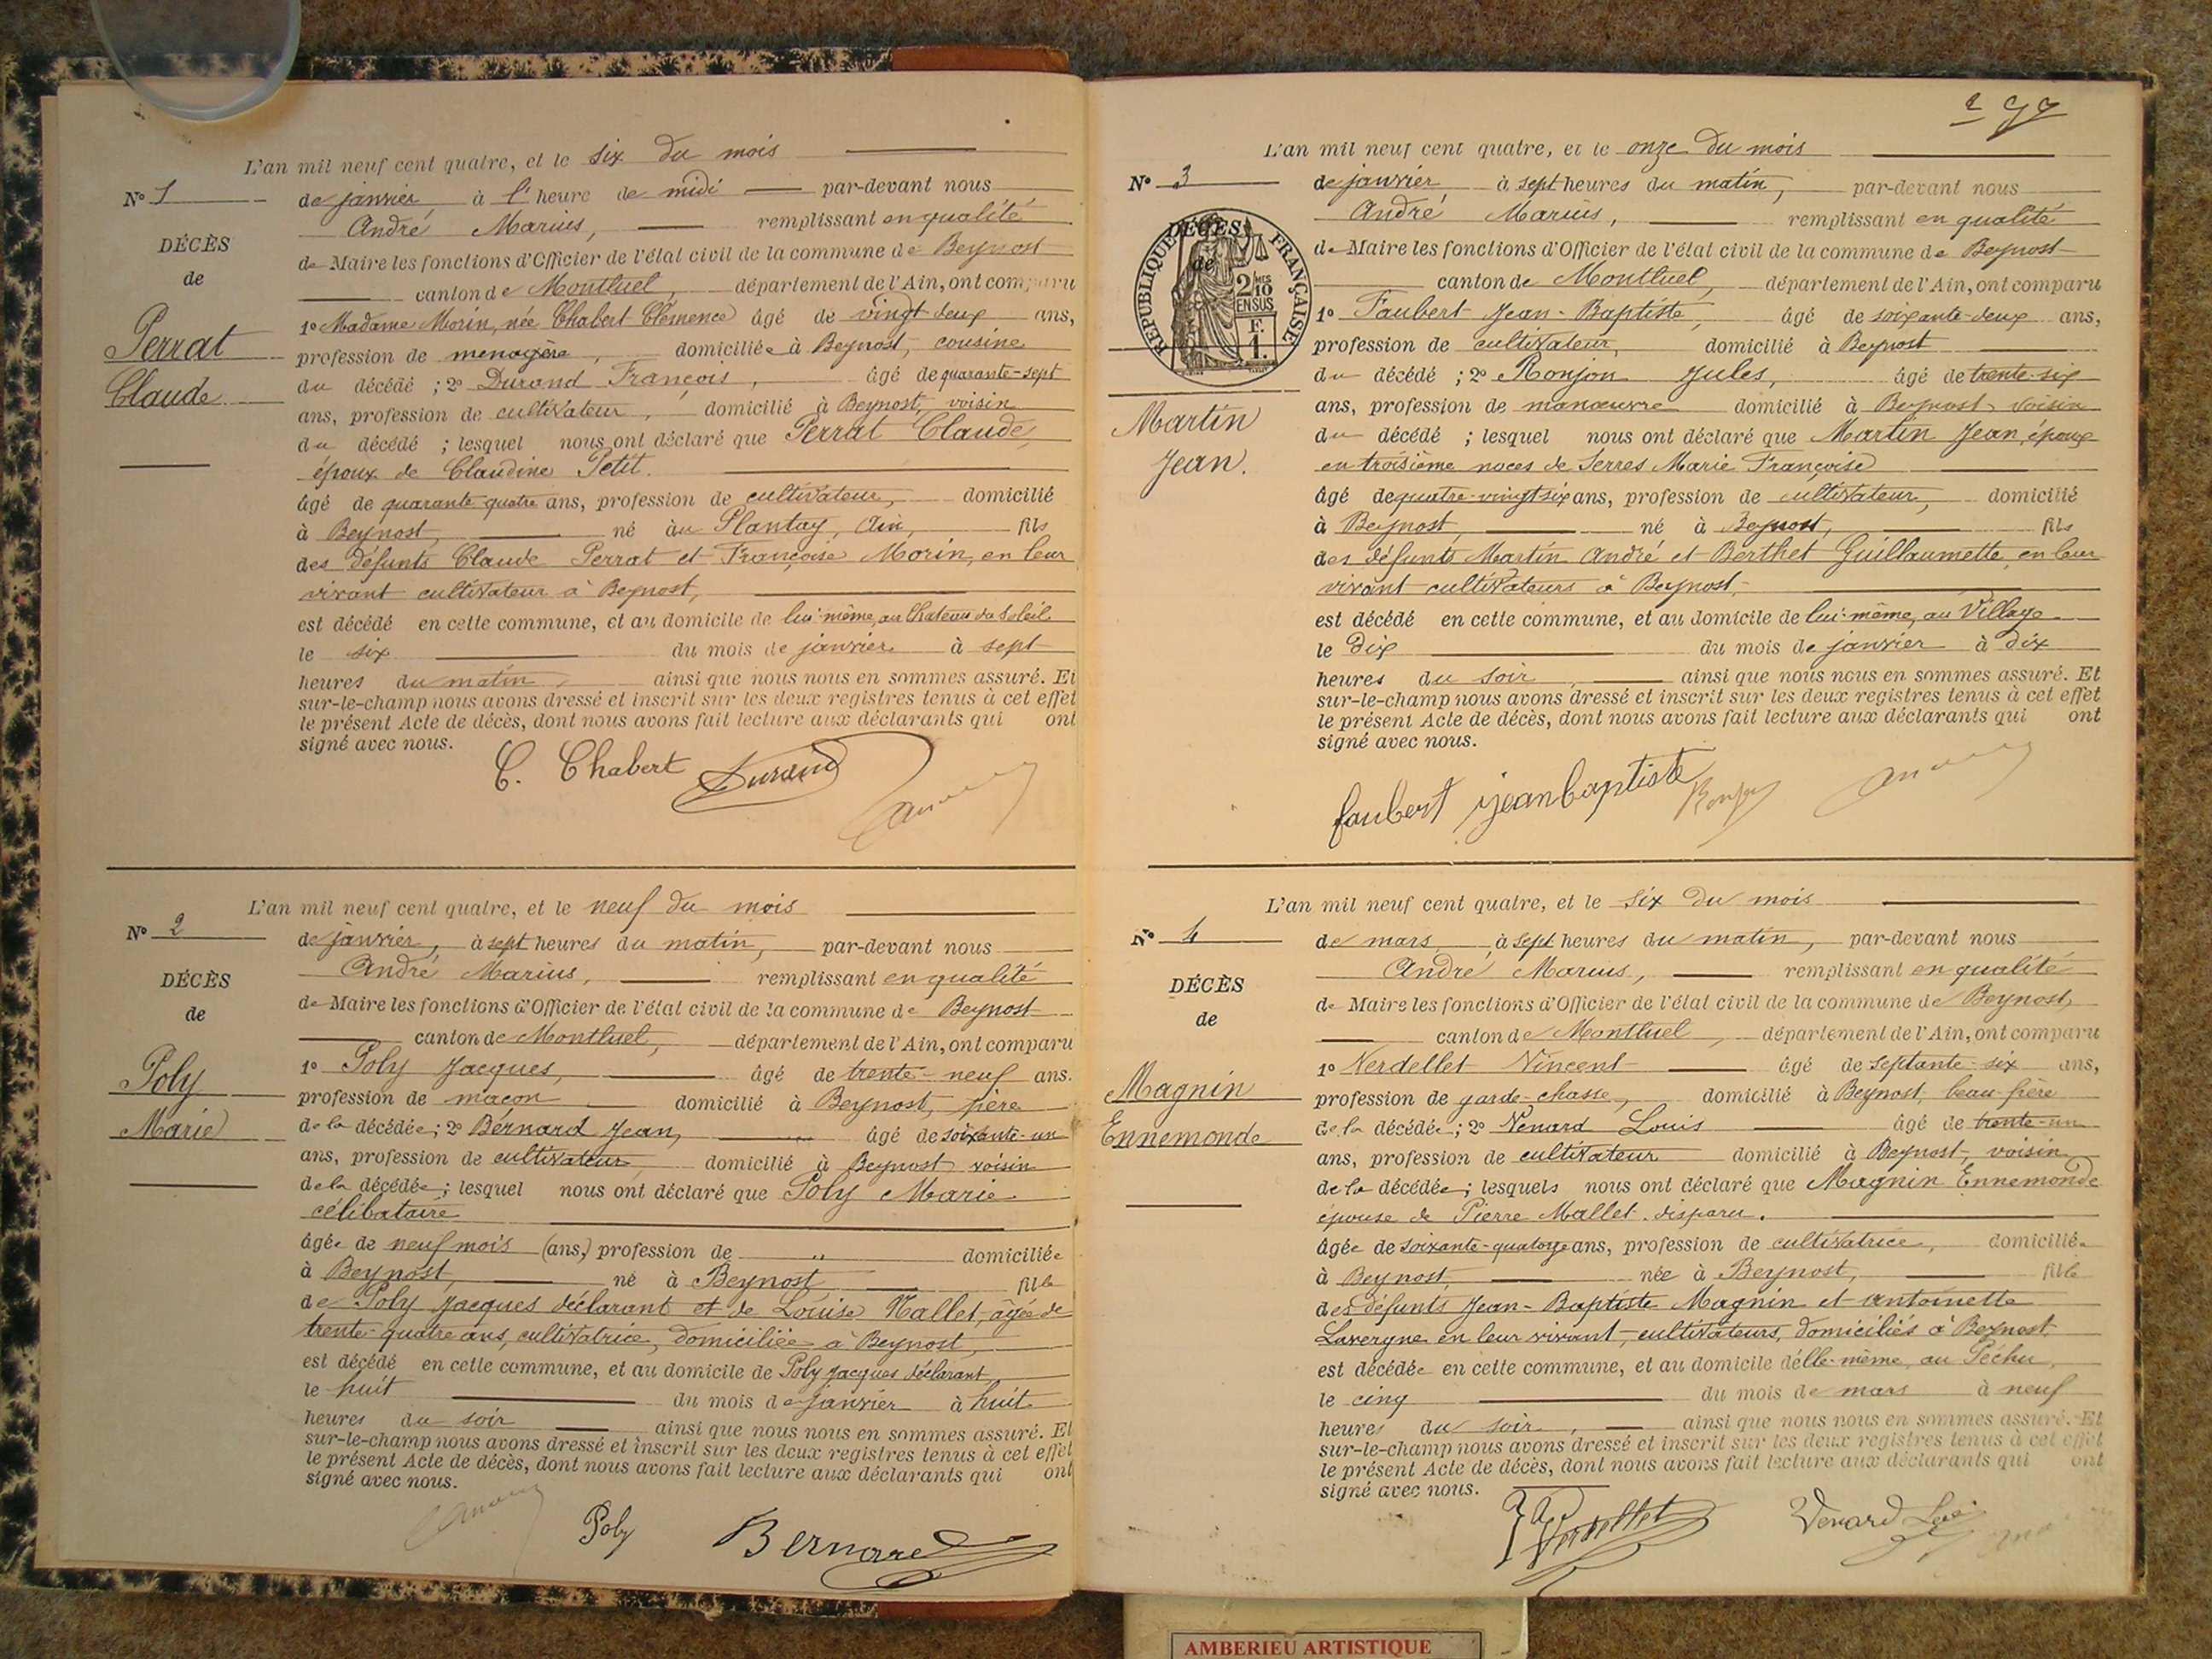 L'an mil neuf cent quatre, et le six du mois
N° 1
de janvier à l'heure de midi par-devant nous
André Marius, remplissant en qualité
DÉCÈS
de Maire les fonctions d'Officier de l'état civil de la commune de Beynost
de
canton de Montluel, département de l'Ain, ont comparu
1° Madame Morin, née Chabert Clémence âgé de vingt deux ans,
Perrat
profession de menagère, domiciliée à Beynost, cousine
Claude
du décédé ; 2° Durand François, âgé de quarante-sept
ans, profession de cultivateur, domicilié à Beynost, voisin
du décédé ; lesquel nous ont déclaré que Perrat Claude,
époux de Claudine Petit.
âgé de quarante quatre ans, profession de cultivateur, domicilié
à Beynost, né au Plantay, Ain, fils
des défunts Claude Perrat et Françoise Morin, en leur
vivant cultivateur à Beynost,
est décédé en cette commune, et au domicile de lui-même, au Chateau du Soleil
le six du mois de janvier à sept
heures du matin, ainsi que nous nous en sommes assuré. Et
sur-le-champ nous avons dressé et inscrit sur les deux registres tenus à cet effet
le présent Acte de décès, dont nous avons fait lecture aux déclarants qui ont
signé avec nous.
C. Chabert Durand
L'an mil neuf cent quatre, et le neuf du mois
N° 2
de janvier, à sept heures du matin, par-devant nous
André Marius, remplissant en qualité
DÉCÈS
de Maire les fonctions d'Officier de l'état civil de la commune de Beynost
de
canton de Montluel, département de l'Ain, ont comparu
1° Poly Jacques, âgé de trente-neuf ans.
Poly
profession de maçon domicilié à Beynost, père
Marie
de la décédée ; 2° Bernard Jean, âgé de soixante-un
ans, profession de cultivateur, domicilié à Beynost voisin
de la décédée ; lesquel nous ont déclaré que Poly Marie
célibataire
âgée de neuf mois (ans,) profession de " domiciliée
à Beynost, né à Beynost fille
de Poly Jacques déclarant et de Louise Mallet, agée de
trente-quatre ans, cultivatrice, domiciliée à Beynost,
est décédé en cette commune, et au domicile de Poly Jacques déclarant
le huit du mois de janvier à huit
heures du soir ainsi que nous nous en sommes assuré. Et
sur-le-champ nous avons dressé et inscrit sur les deux registres tenus à cet effet
le présent Acte de décès, dont nous avons fait lecture aux déclarants qui ont
signé avec nous.
Poly Bernard
L'an mil neuf cent quatre, et le onze du mois
N° 3
de janvier à sept heures du matin, par-devant nous
André Marius, remplissant en qualité
DÉCÈS
de
RÉPUBLIQUE FRANÇAISE
2/10 EN SUS
F. 1.
de Maire les fonctions d'Officier de l'état civil de la commune de Beynost
canton de Montluel, département de l'Ain, ont comparu
1° Faubert Jean-Baptiste, âgé de soixante-deux ans,
profession de cultivateur, domicilié à Beynost
du décédé ; 2° Ronjon Jules, âgé de trente-six
Martin
ans, profession de manœuvre domicilié à Beynost voisin
Jean.
du décédé ; lesquel nous ont déclaré que Martin Jean, époux
en troisième noces de Serres Marie Françoise
âgé de quatre-vingt six ans, profession de cultivateur, domicilié
à Beynost, né à Beynost, fils
des défunts Martin André et Berthet Guillaumette, en leur
vivant cultivateurs à Beynost,
est décédé en cette commune, et au domicile de lui-même, au Village
le dix du mois de janvier à dix
heures du soir, ainsi que nous nous en sommes assuré. Et
sur-le-champ nous avons dressé et inscrit sur les deux registres tenus à cet effet
le présent Acte de décès, dont nous avons fait lecture aux déclarants qui ont
signé avec nous.
faubert jeanbaptiste Ronjon
L'an mil neuf cent quatre, et le six du mois
N° 4
de mars à sept heures du matin, par-devant nous
André Marius, remplissant en qualité
DÉCÈS
de Maire les fonctions d'Officier de l'état civil de la commune de Beynost,
de
canton de Montluel, département de l'Ain, ont comparu
1° Verdellet Vincent âgé de septante-six ans,
Magnin
profession de garde-chasse, domicilié à Beynost, beau-frère
Ennemonde
de la décédée ; 2° Venard Louis âgé de trente-un
ans, profession de cultivateur domicilié à Beynost, voisin
de la décédée ; lesquels nous ont déclaré que Magnin Ennemonde
épouse de Pierre Mallet, disparu.
âgée de soixante-quatorze ans, profession de cultivatrice, domiciliée
à Beynost, née à Beynost, fille
des défunts Jean-Baptiste Magnin et Antoinette
Lavergne en leur vivant, cultivateurs, domiciliés à Beynost,
est décédée en cette commune, et au domicile d'elle-même, au Péchu,
le cinq du mois de mars à neuf
heures du soir, ainsi que nous nous en sommes assuré. Et
sur-le-champ nous avons dressé et inscrit sur les deux registres tenus à cet effet
le présent Acte de décès, dont nous avons fait lecture aux déclarants qui ont
signé avec nous.
Verdellet Venard
AMBERIEU ARTISTIQUE